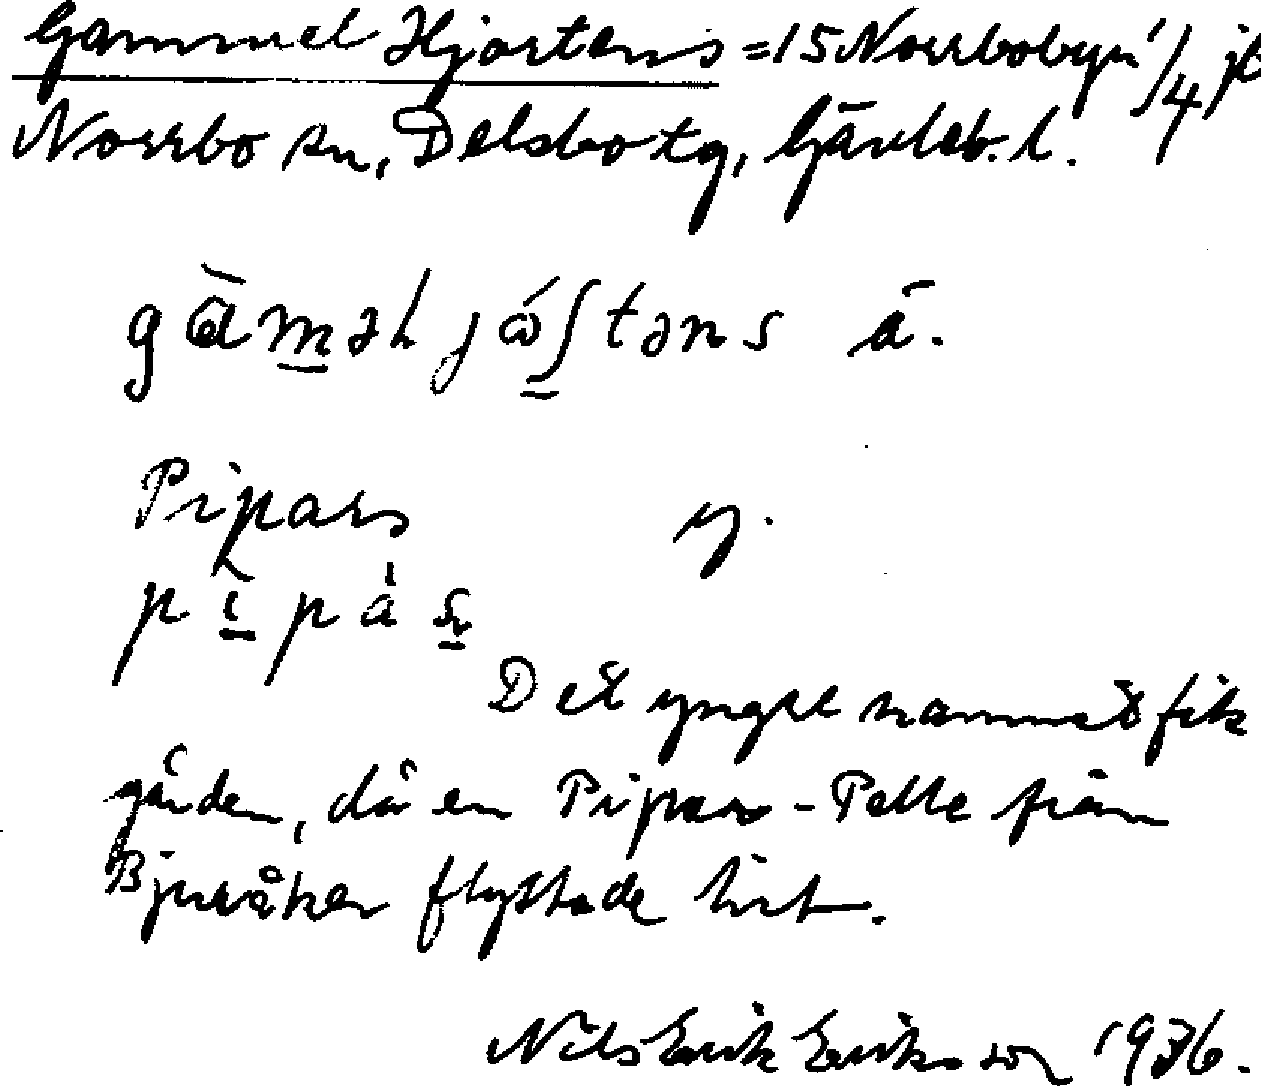 Gammel Hjortens = 15 Norrbobyn 1/4 jb
Norrbo sn, Delsbo tg, Gävleb. l.
ä.
Pipars y.
Det yngre namnet fick
gården, då en Pipars-Pelle från
Bjuråker flyttade hit.
Nils Erik Eriksson 1936.